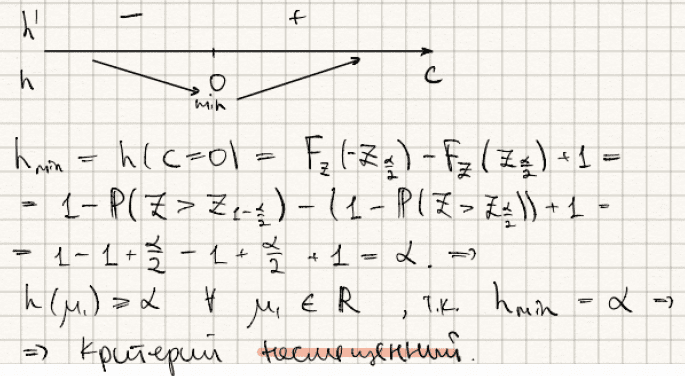 h' − +
h 0 c
min
h_min = h(c=0) = F_Z(-Z_{α/2}) - F_Z(Z_{α/2}) + 1 =
= 1 - P(Z > Z_{1-α/2}) - (1 - P(Z > Z_{α/2})) + 1 =
= 1 - 1 + α/2 - 1 + α/2 + 1 = α. =>
h(μ₁) ≥ α ∀ μ₁ ∈ R, т.к. h_min = α =>
=> критерий несмещенный.